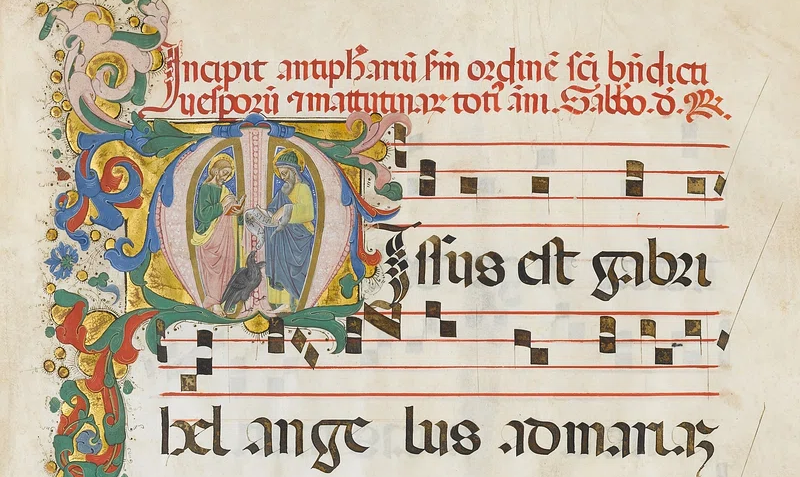 Incipit antiphariū scd̄m ordinē sc̄i bn̄dicti
uesporū ⁊ mattutinaꝝ toti᷒ ānī. Sabb̄o. d. R.
Missus est gabri
hel ange lus ad mariaꝫ